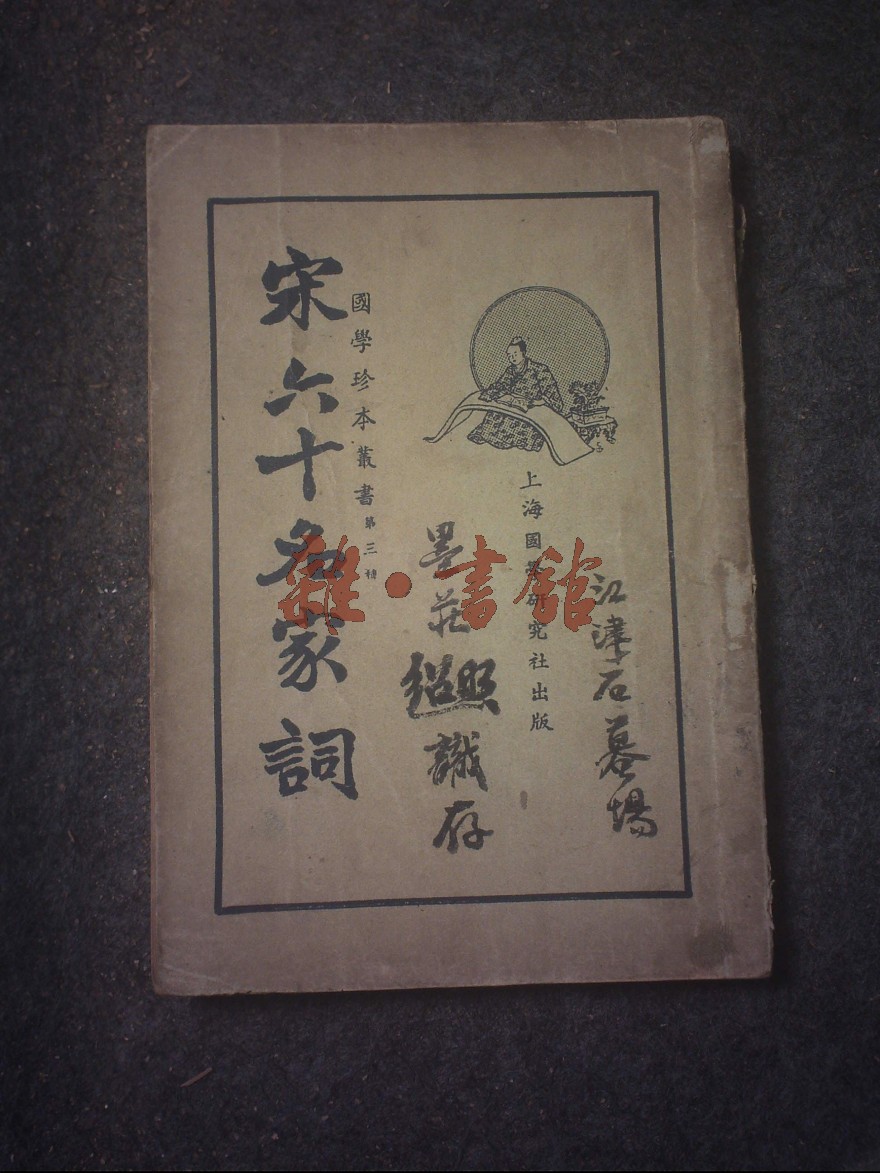 江津石墓場
上海國學研究社出版
墨莊
紹興
識存
國學珍本叢書第三種
宋六十名家詞
雜·書館